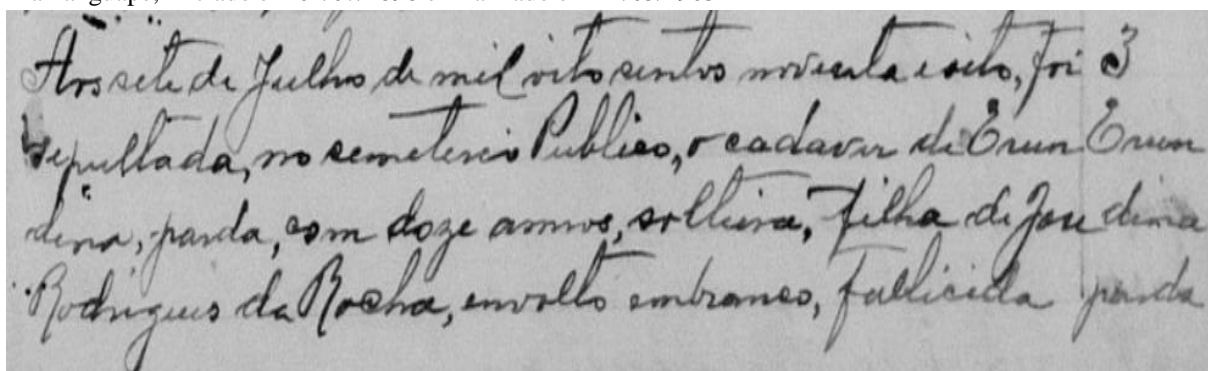 Aos sete de Julho de mil oito sentos noventa e oito, foi 3
sepultada, no semeterio Publico, o cadaver de Erun Erun
dina, parda, com doze annos, solteira, filha de Jose dina
Rodrigues da Rocha, envolto em branco, fallicida parda